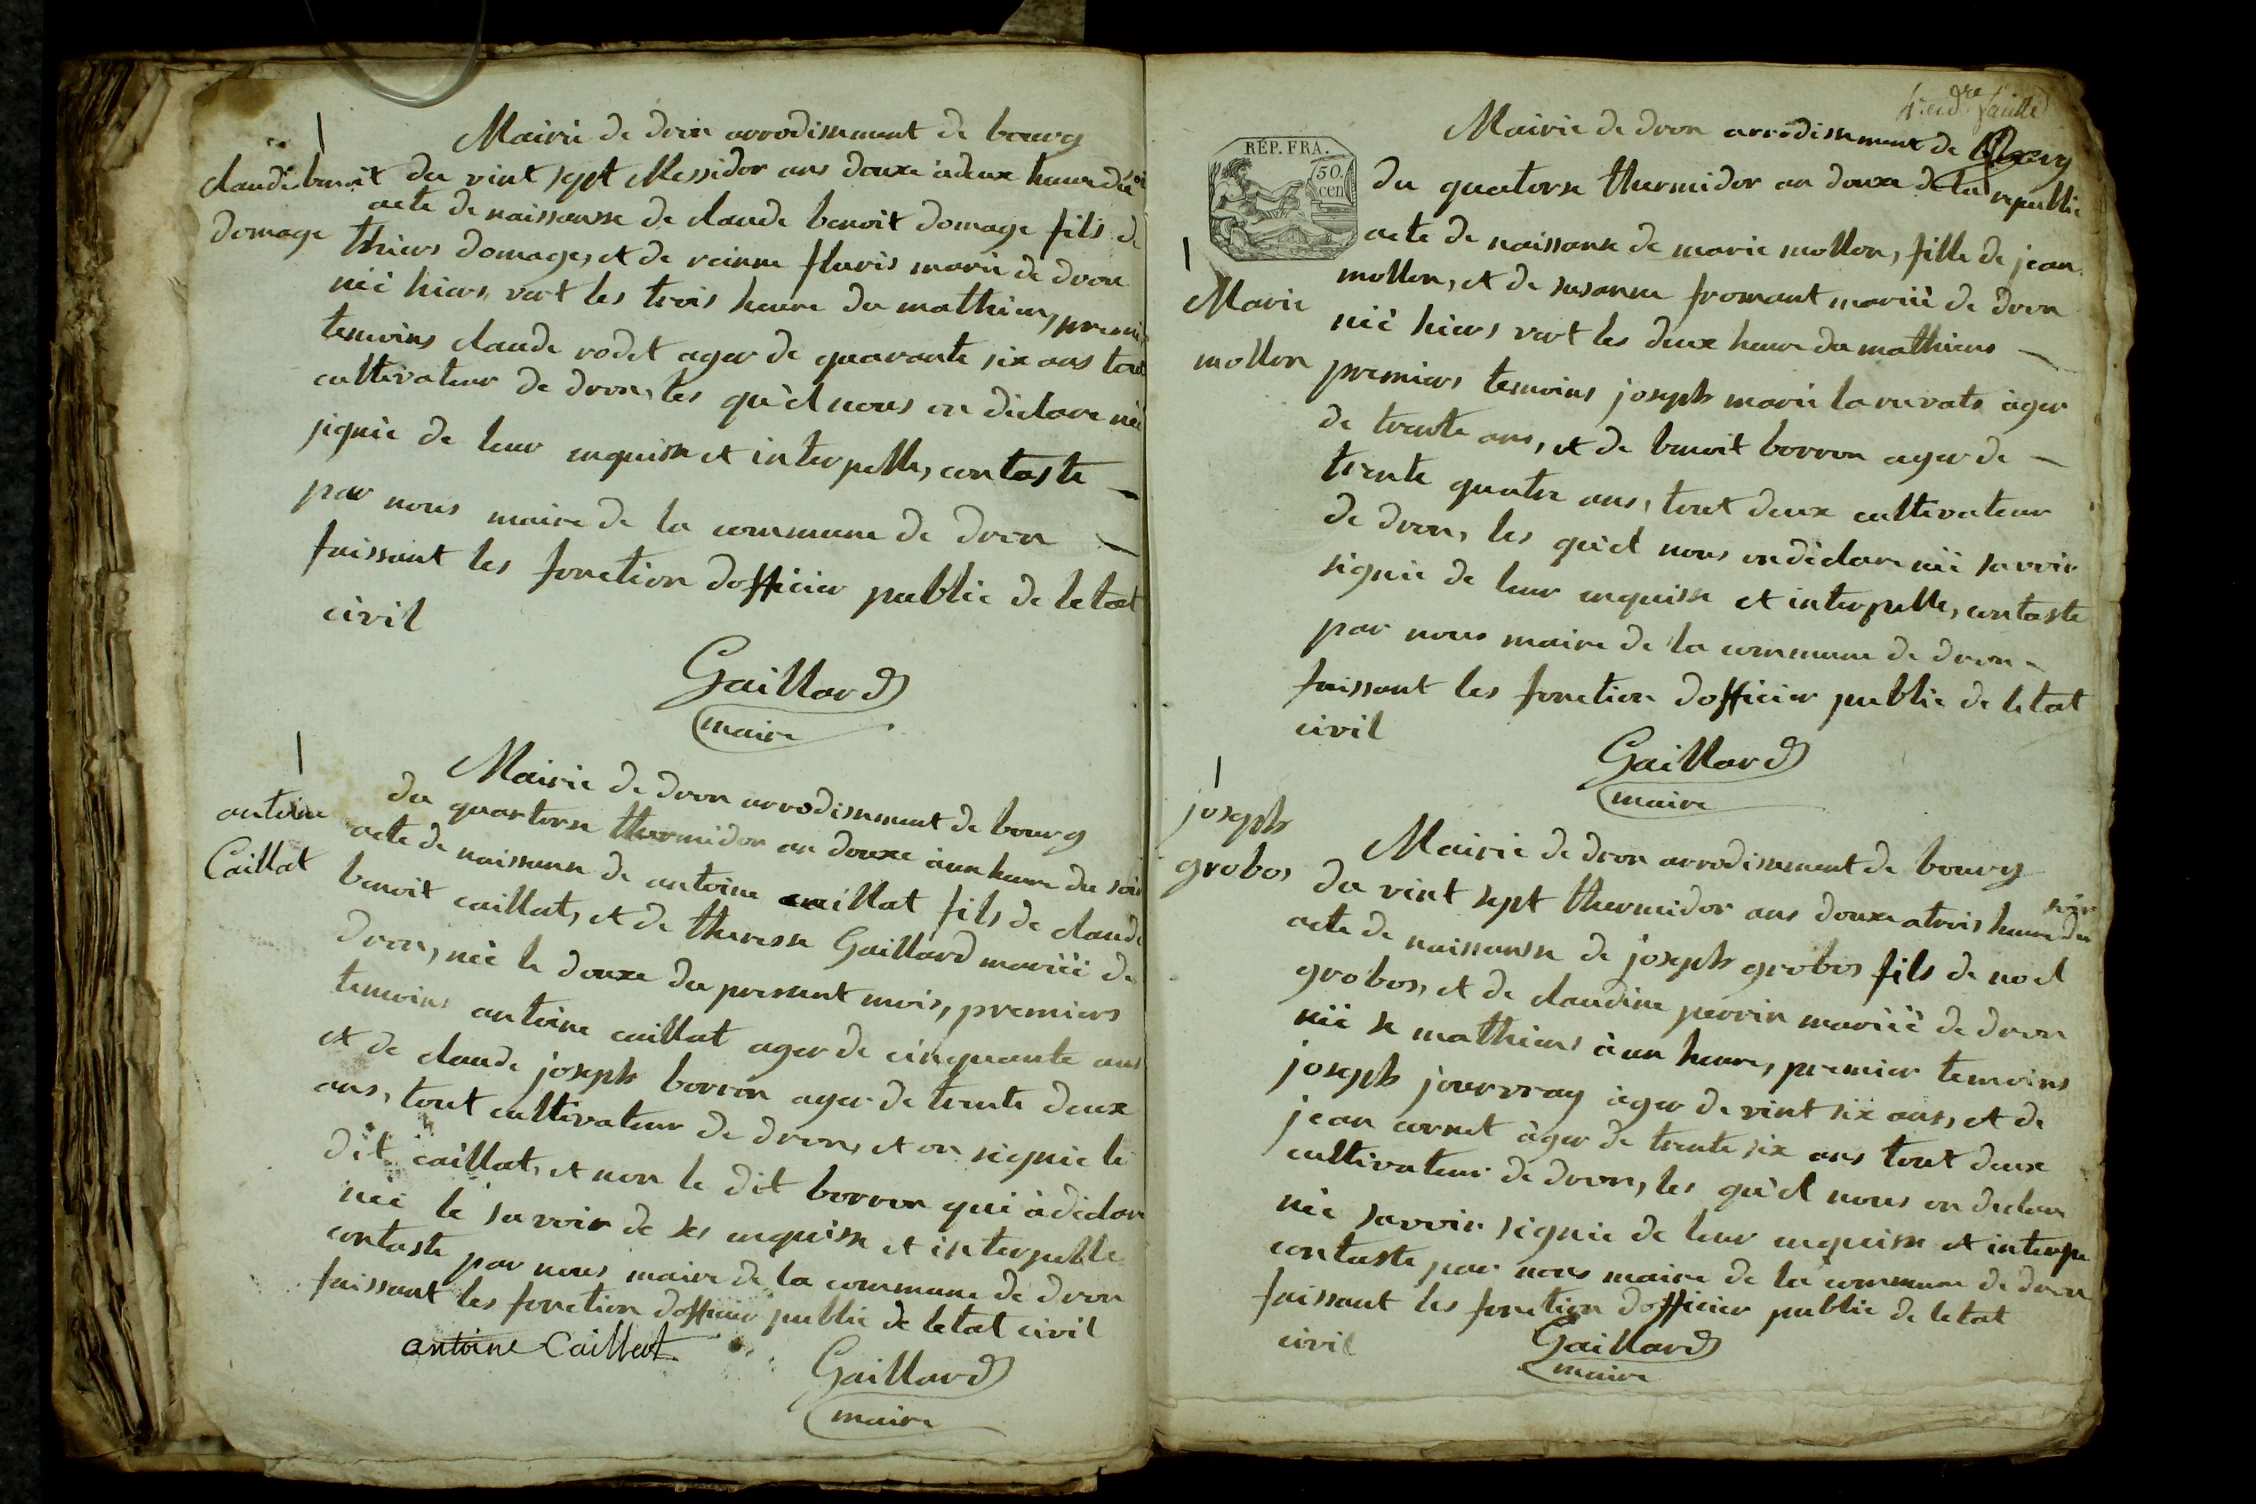 Mairie de dron arrodissement de bourg
claude benoit
domage
du vint sept Messidor ans douxe à deux heure du
acte de naissansse de claude benoit domage fils de
thiers domage, et de reinne fluris marié de dron
néé hiers vert les trois heure du mathiers, premie
temoins claude rodet ager de quarante six ans tout
cultivateur de dron, les qu'el nous on déclare néé
signié de leur enquisse et interpelle, contaste
par nous maire de la commune de dron
faissant les fonction dofficier public de letat
civil
Gaillard
maire
antoine
Caillat
Mairie de dron arrodissement de bourg
du quartorse thermidor an douxe à un heure du soir
acte de naissansse de antoine caillat fils de claude
benoit caillat, et de theresse Gaillard mariéé de
dron, néé le douxe du present mois, premiers
temoins antoine caillat ager de cinquante ans
et de claude joseph borron ager de trente deux
ans, tout cultivateur de dron, et on signié le
dit caillat, et non le dit borron qui à déclare
néé le savoir de ses enquisse et interpelle
contaste par nous maire de la commune de dron
faissant les fonction dofficier public de letat civil
antoine Caillat
Gaillard
maire
RÉP. FRA.
50.
cen
Mairie de dron arrodissement de Bourg
du quatorse thermidor an douxe de la republic
Marie
mollon
acte de naissansse de marie mollon, fille de jean
mollon, et de susanne fromant mariéé de dron
néé hiers vert les deux heure du mathiers
premiers temoins joseph marie laruvate àger
de trente ans, et de benoit borron ager de
trente quatre ans, tout deux cultivateur
de dron, les qu'el nous on déclare néé savoir
signié de leur enquisse et interpelle, contaste
par nous maire de la commune de dron
faissant les fonction dofficier public de letat
civil
Gaillard
maire
joseph
grobos
Mairie de dron arrodissement de bourg
du vint sept thermidor ans douxe a trois heure du soir
acte de naissansse de joseph grobos fils de noel
grobos, et de claudine perrin mariéé de dron
néé se mathiers à un heure, premier temoins
joseph jourvray àger de vint six ans, et de
jean cornet àger de trente six ans tout deux
cultivateur de dron, les qu'el nous on declare
néé savoir signié de leur enquisse et interpe
contaste par nous maire de la commune de dron
faissant les fonction dofficier public de letat
civil
Gaillard
maire